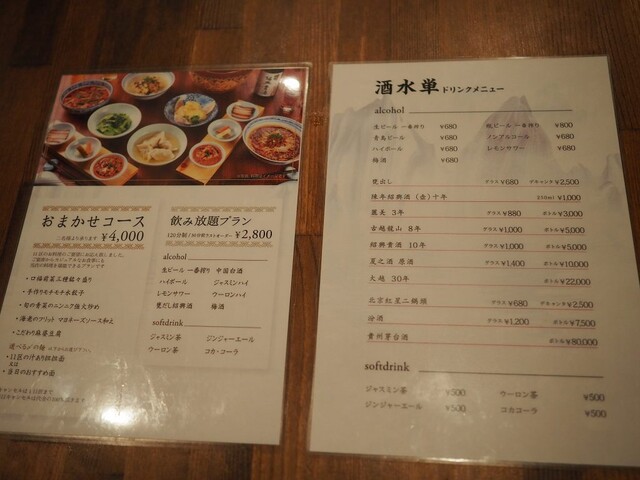 おまかせコース
二名様より承ります ¥4,000
・口福前菜三種盛り盛り
・手作りモチモチ水餃子
・旬の青菜のニンニク強火炒め
・海老のフリット マヨネーズソース和え
・こだわり麻婆豆腐
選べる〆の麺
・11匹の汁あり担担麺
又は
・当日のおすすめ麺
飲み放題プラン
120分制 / 90分後ラストオーダー ¥2,800
alcohol
生ビール 一番搾り 中国白酒
ハイボール ジャスミンハイ
レモンサワー ウーロンハイ
甕だし紹興酒 梅酒
softdrink
ジャスミン茶 ジンジャーエール
ウーロン茶 コカ・コーラ
酒水単 ドリンクメニュー
alcohol
生ビール 一番搾り ¥680 瓶ビール 一番搾り ¥800
青島ビール ¥680 ノンアルコール ¥680
ハイボール ¥680 レモンサワー ¥680
梅酒 ¥680
甕出し グラス ¥680 デキャンタ ¥2,500
陳年紹興酒(壺)十年 ¥1,000
麗美 3年 グラス ¥880 ボトル ¥3,000
古越龍山 8年 グラス ¥1,000 ボトル ¥5,000
紹興貴酒 10年 グラス ¥1,000 ボトル ¥5,000
夏之酒 原酒 グラス ¥1,400 ボトル ¥10,000
大越 30年 ボトル ¥22,000
北京紅星二鍋頭 グラス ¥680 デキャンタ ¥2,500
汾酒 グラス ¥1,200 ボトル ¥7,500
貴州茅台酒 ボトル ¥80,000
softdrink
ジャスミン茶 ¥500 ウーロン茶 ¥500
ジンジャーエール ¥500 コカコーラ ¥500